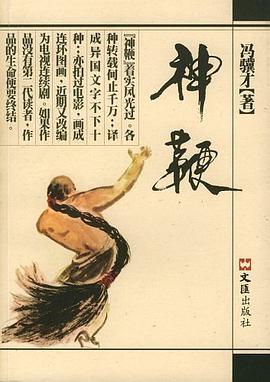 冯骥才【著】
神鞭
『神鞭』着实风光过。各
种转载何止千万；译
成异国文字不下十
种；亦拍过电影，画成
连环图画，近期又改编
为电视连续剧。如果作
品没有第三代读者，作
品的生命便要终结。
文汇出版社